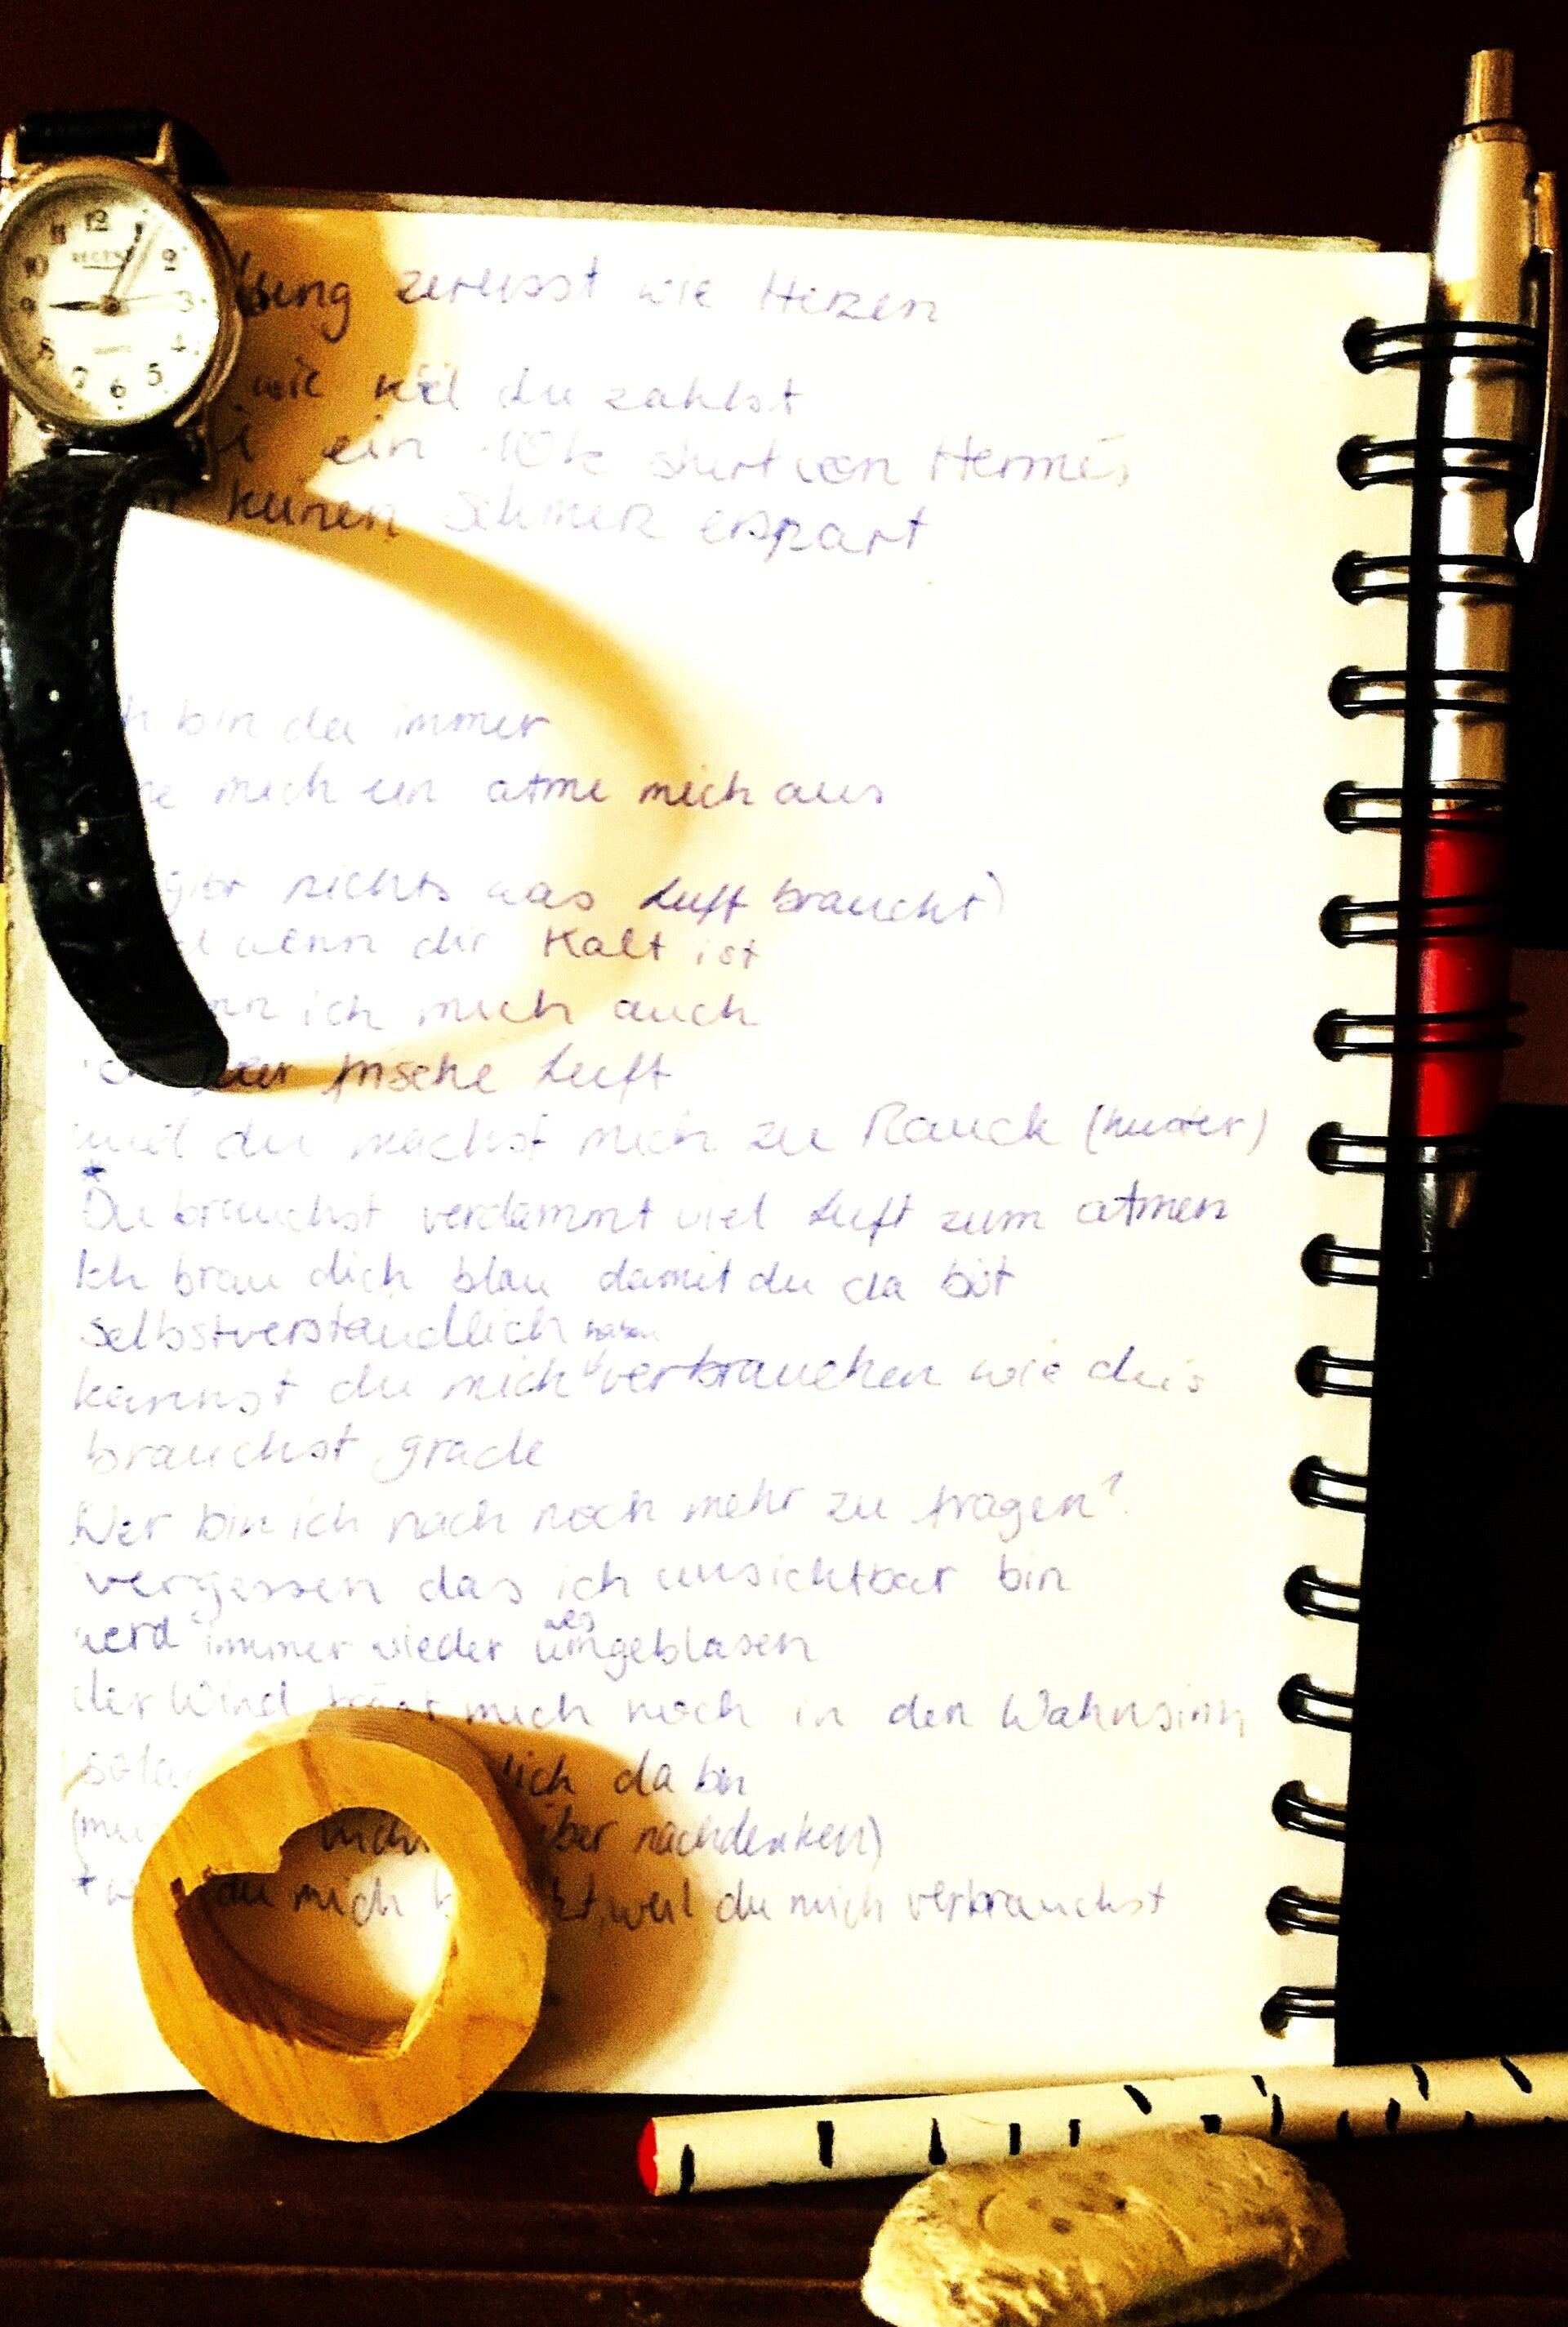 12
2
3
4
5
6
7
8
9
10
REGENT
QUARTZ
zereisst wie Herzen
wie viel du zahlst
ein 10k shirt von Hermés
keinen Schmerz erspart
bin da immer
mich ein atme mich aus
gibt nichts was Luft braucht)
wenn dir Kalt ist
ich mich auch
frische Luft
weil du machst mich zu Rauch (huster)
*
Du brauchst verdammt viel Luft zum atmen
Ich brau dich blau damit du da bist
selbstverständlich haben
kannst du mich verbrauchen wie du's
brauchst grade
Wer bin ich nach noch mehr zu fragen?
vergessen das ich unsichtbar bin
werd immer wieder umgeblasen
weg
der Wind trägt mich noch in den Wahnsinn
da bin
nicht über nachdenken)
* du mich weil du mich verbrauchst